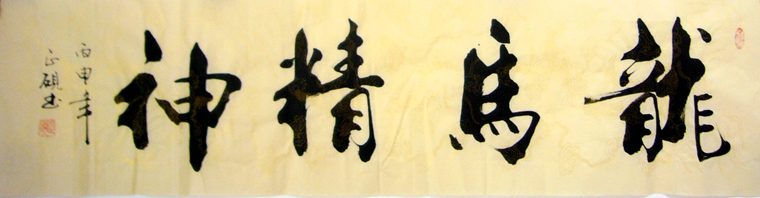 龍馬精神
丙申年
正硯书